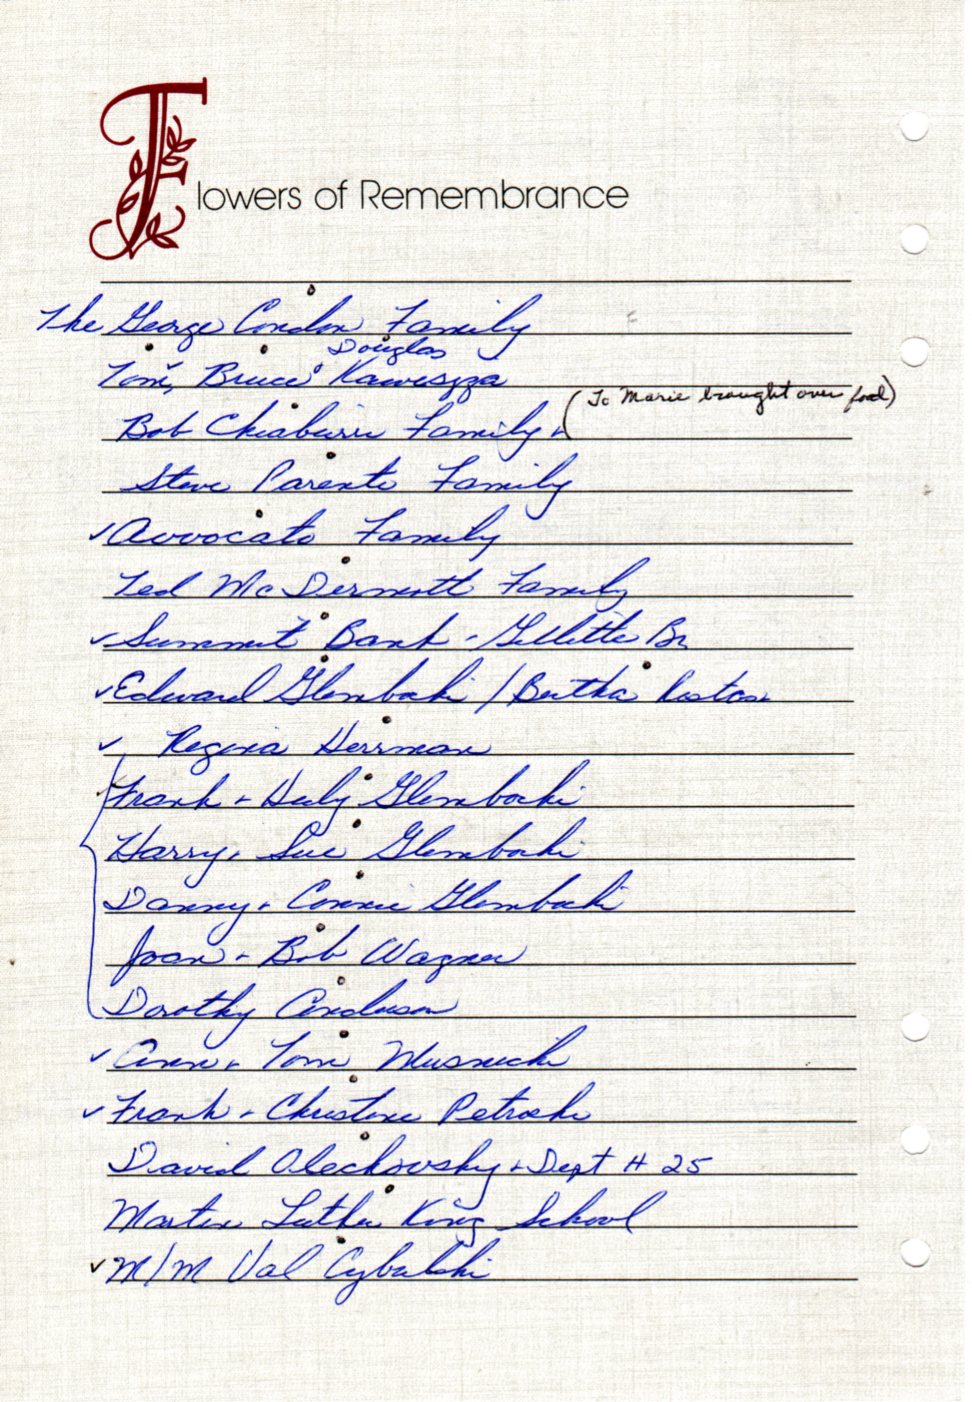 Flowers of Remembrance
The George Condon Family
Douglas
Tom, Bruce, Kawiszza
(To Marie brought over food)
Bob Chiaburri Family +
Steve Parente Family
✓ Avvocato Family
Ted McDermott Family
✓ Summit Bank - Gillette Br
✓ Edward Glembocki / Bertha Roston
✓ Regina Herrman
Frank + Glembocki
Harry + Sue Glembocki
Danny + Connie Glembocki
Joan + Bob Wagner
Dorothy Anderson
✓ Ann + Tom Musnicki
✓ Frank + Christine Petroski
David Olechowsky + Dept # 25
Martin Luther King School
✓ M/M Val Cybulski